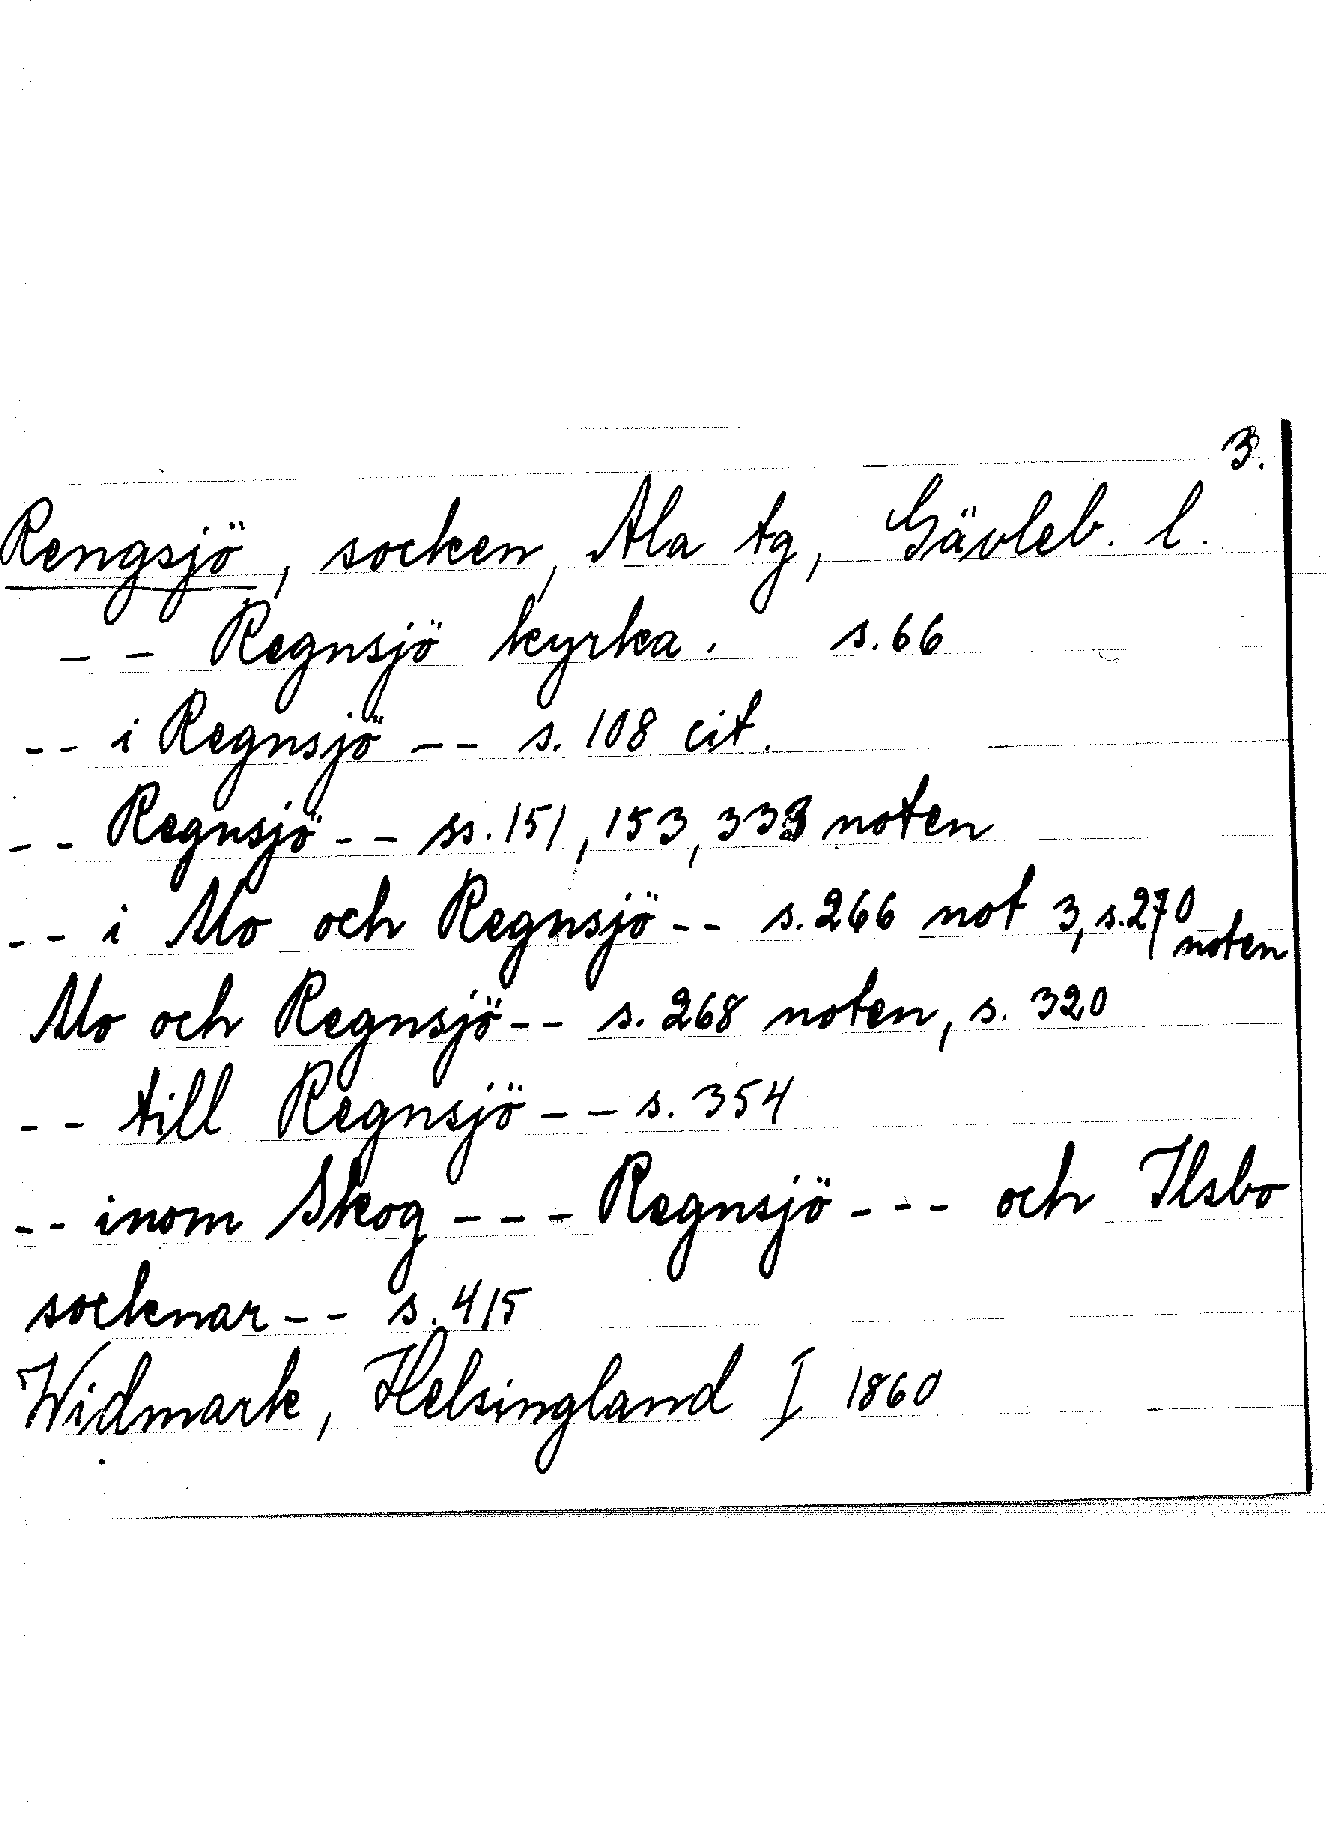 3.
Rengsjö, socken, Ala tg, Gävleb. l.
-- Regnsjö kyrka. s.66
-- i Regnsjö -- s. 108 cit.
-- Regnsjö -- ss. 151, 153, 333 noten
-- i Mo och Regnsjö -- s. 266 not 3, s. 270 noten
Mo och Regnsjö -- s. 268 noten, s. 320
-- till Regnsjö -- s. 354
-- inom Skog --- Regnsjö --- och Ilsbo
socknar -- s. 415
Widmark, Helsingland I 1860